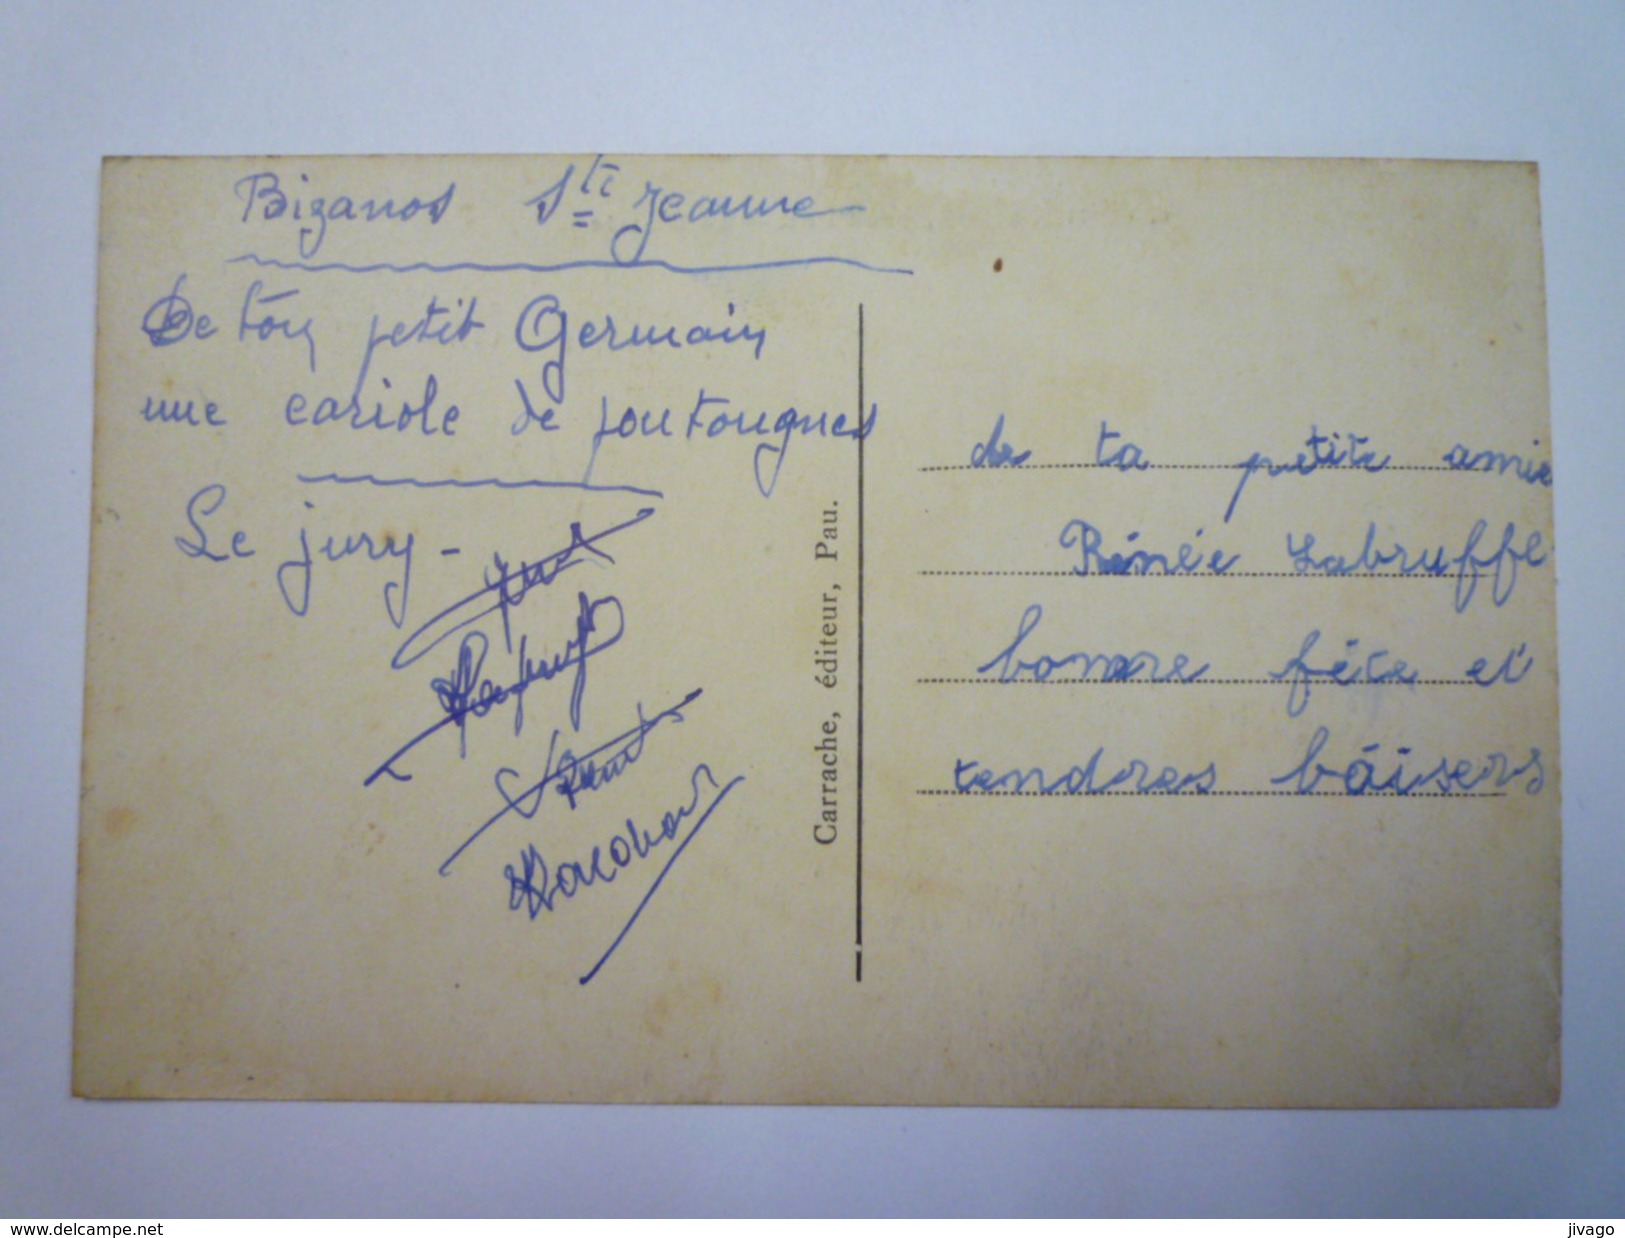 Bizanos Ste Jeanne
De ton petit Germain
une cariole de poutougnes
Le jury -
Carrache, éditeur, Pau.
de ta petite amie
Rénée Labruffe
bonne fête et
tendres bâisers
www.delcampe.net
jivago